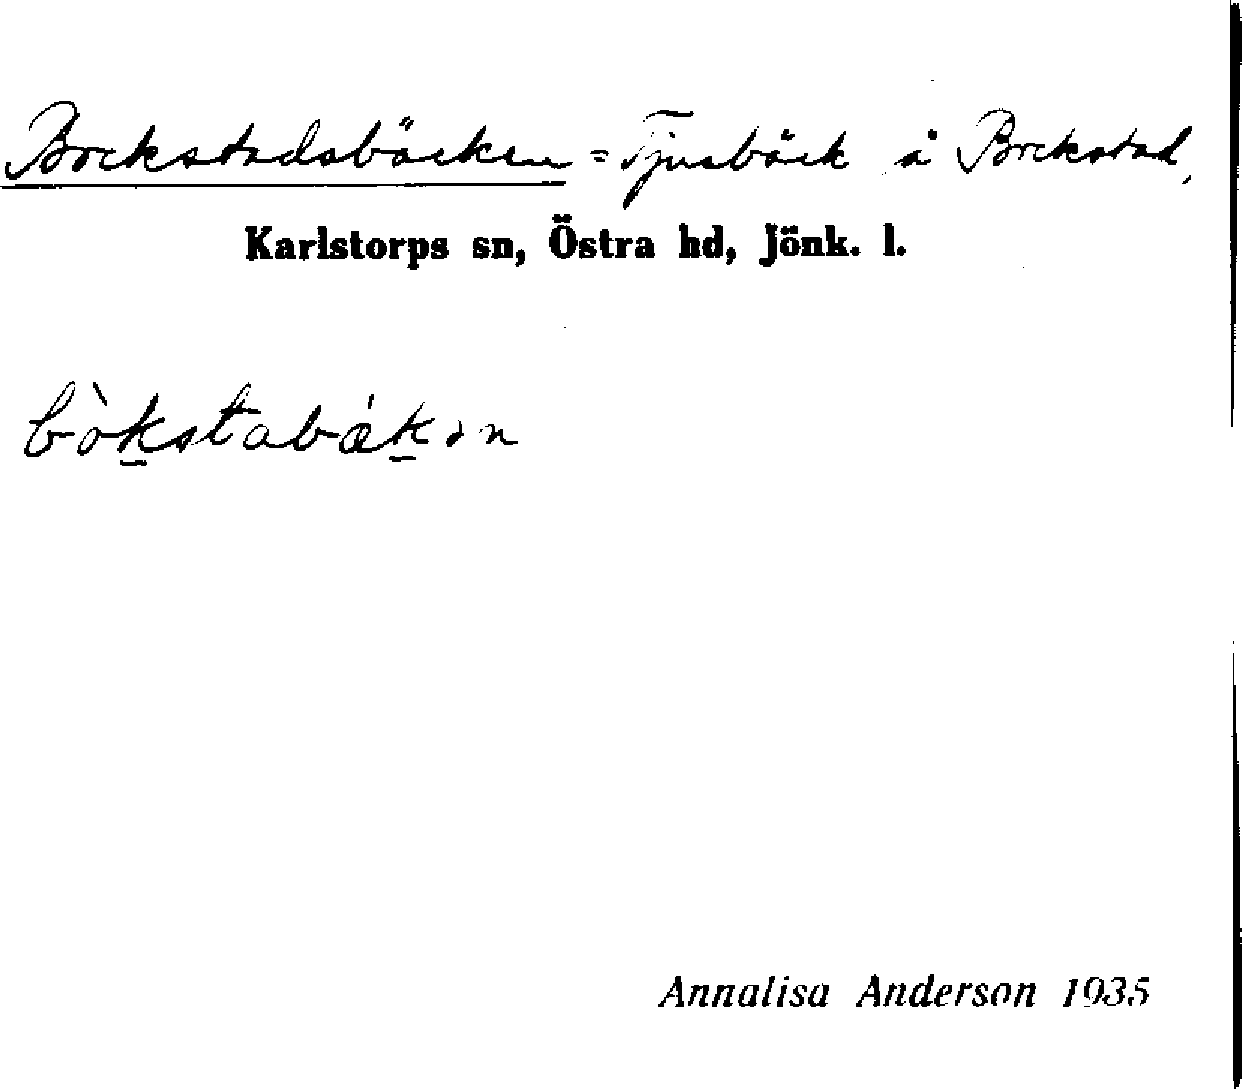 Bockstadsbäcken = Tjusbäck å Bockstad,
Karlstorps sn, Östra hd, Jönk. l.
bòkstabákən
Annalisa Anderson 1935